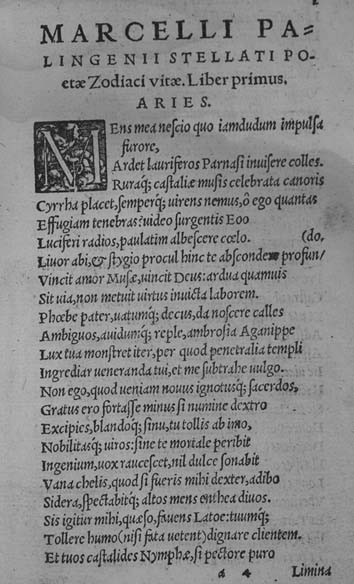 MARCELLI PA=
LINGENII STELLATI PO-
etæ Zodiaci vitæ. Liber primus.
ARIES.
MEns mea nescio quo iamdudum impulsa
furore,
Ardet lauriferos Parnasi inuisere colles.
Ruraq; castaliæ musis celebrata canoris
Cyrrha placet, semperq; uirens nemus, ô ego quantas
Effugiam tenebras? uideo surgentis Eoo
Luciferi radios, paulatim albescere cœlo. (do,
Liuor abi, & stygio procul hinc te absconde profun/
Vincit amor Musæ, uincit Deus: ardua quamuis
Sit uia, non metuit uirtus inuicta laborem.
Phœbe pater, uatumq; decus, da noscere calles
Ambiguos, auidumq; reple, ambrosia Aganippe
Lux tua monstret iter, per quod penetralia templi
Ingrediar ueneranda tui, et me subtrahe uulgo.
Non ego, quod ueniam nouus ignotusq; sacerdos,
Gratus ero fortasse minus si numine dextro
Excipies, blandoq; sinu, tu tollis ab imo,
Nobilitasq; uiros: sine te mortale peribit
Ingenium, uox raucescet, nil dulce sonabit
Vana chelis, quod si fueris mihi dexter, adibo
Sidera, spectabitq; altos mens enthea diuos.
Sis igitur mihi, quæso, fauens Latoe: tuumq;
Tollere humo (nisi fata uetent) dignare clientem.
Et tuos castalides Nymphæ, si pectore puro
a 4 Limina